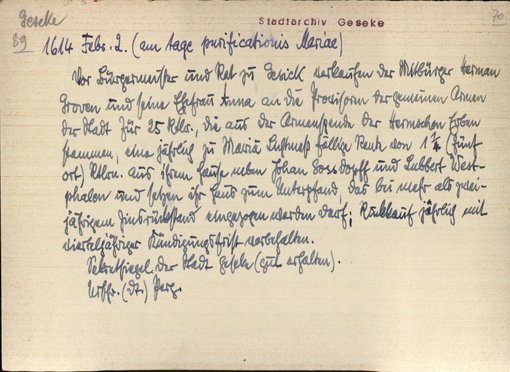 Geseke
Stadtarchiv Geseke
70
89
1614 Febr. 2. (am tage purificationis Mariae)
Vor Bürgermeister und Rat zu Gesick verkaufen der Mitbürger Herman
Groven und seine Ehefrau Anna an die Provisorn der gemeinen Armen
der Stadt für 25 Rtlr., die aus der Armenspende der Harmschen Erben
stammen, eine jährlich zu Mariä Lichtmeß fällige Rente von 1 1/4 (fünf
ort) Rtlrn. aus ihrem Hause neben Johan Gossdopff und Lubbert West-
phalen und setzen ihr Haus zum Unterpfand das bei mehr als zwei-
jährigem Zinsrückstand eingezogen werden darf; Rückkauf jährlich mit
vierteljähriger Kündigungsfrist vorbehalten.
Sekretsiegel der Stadt Geseke (gut erhalten).
Urschr. (dt.) Perg.